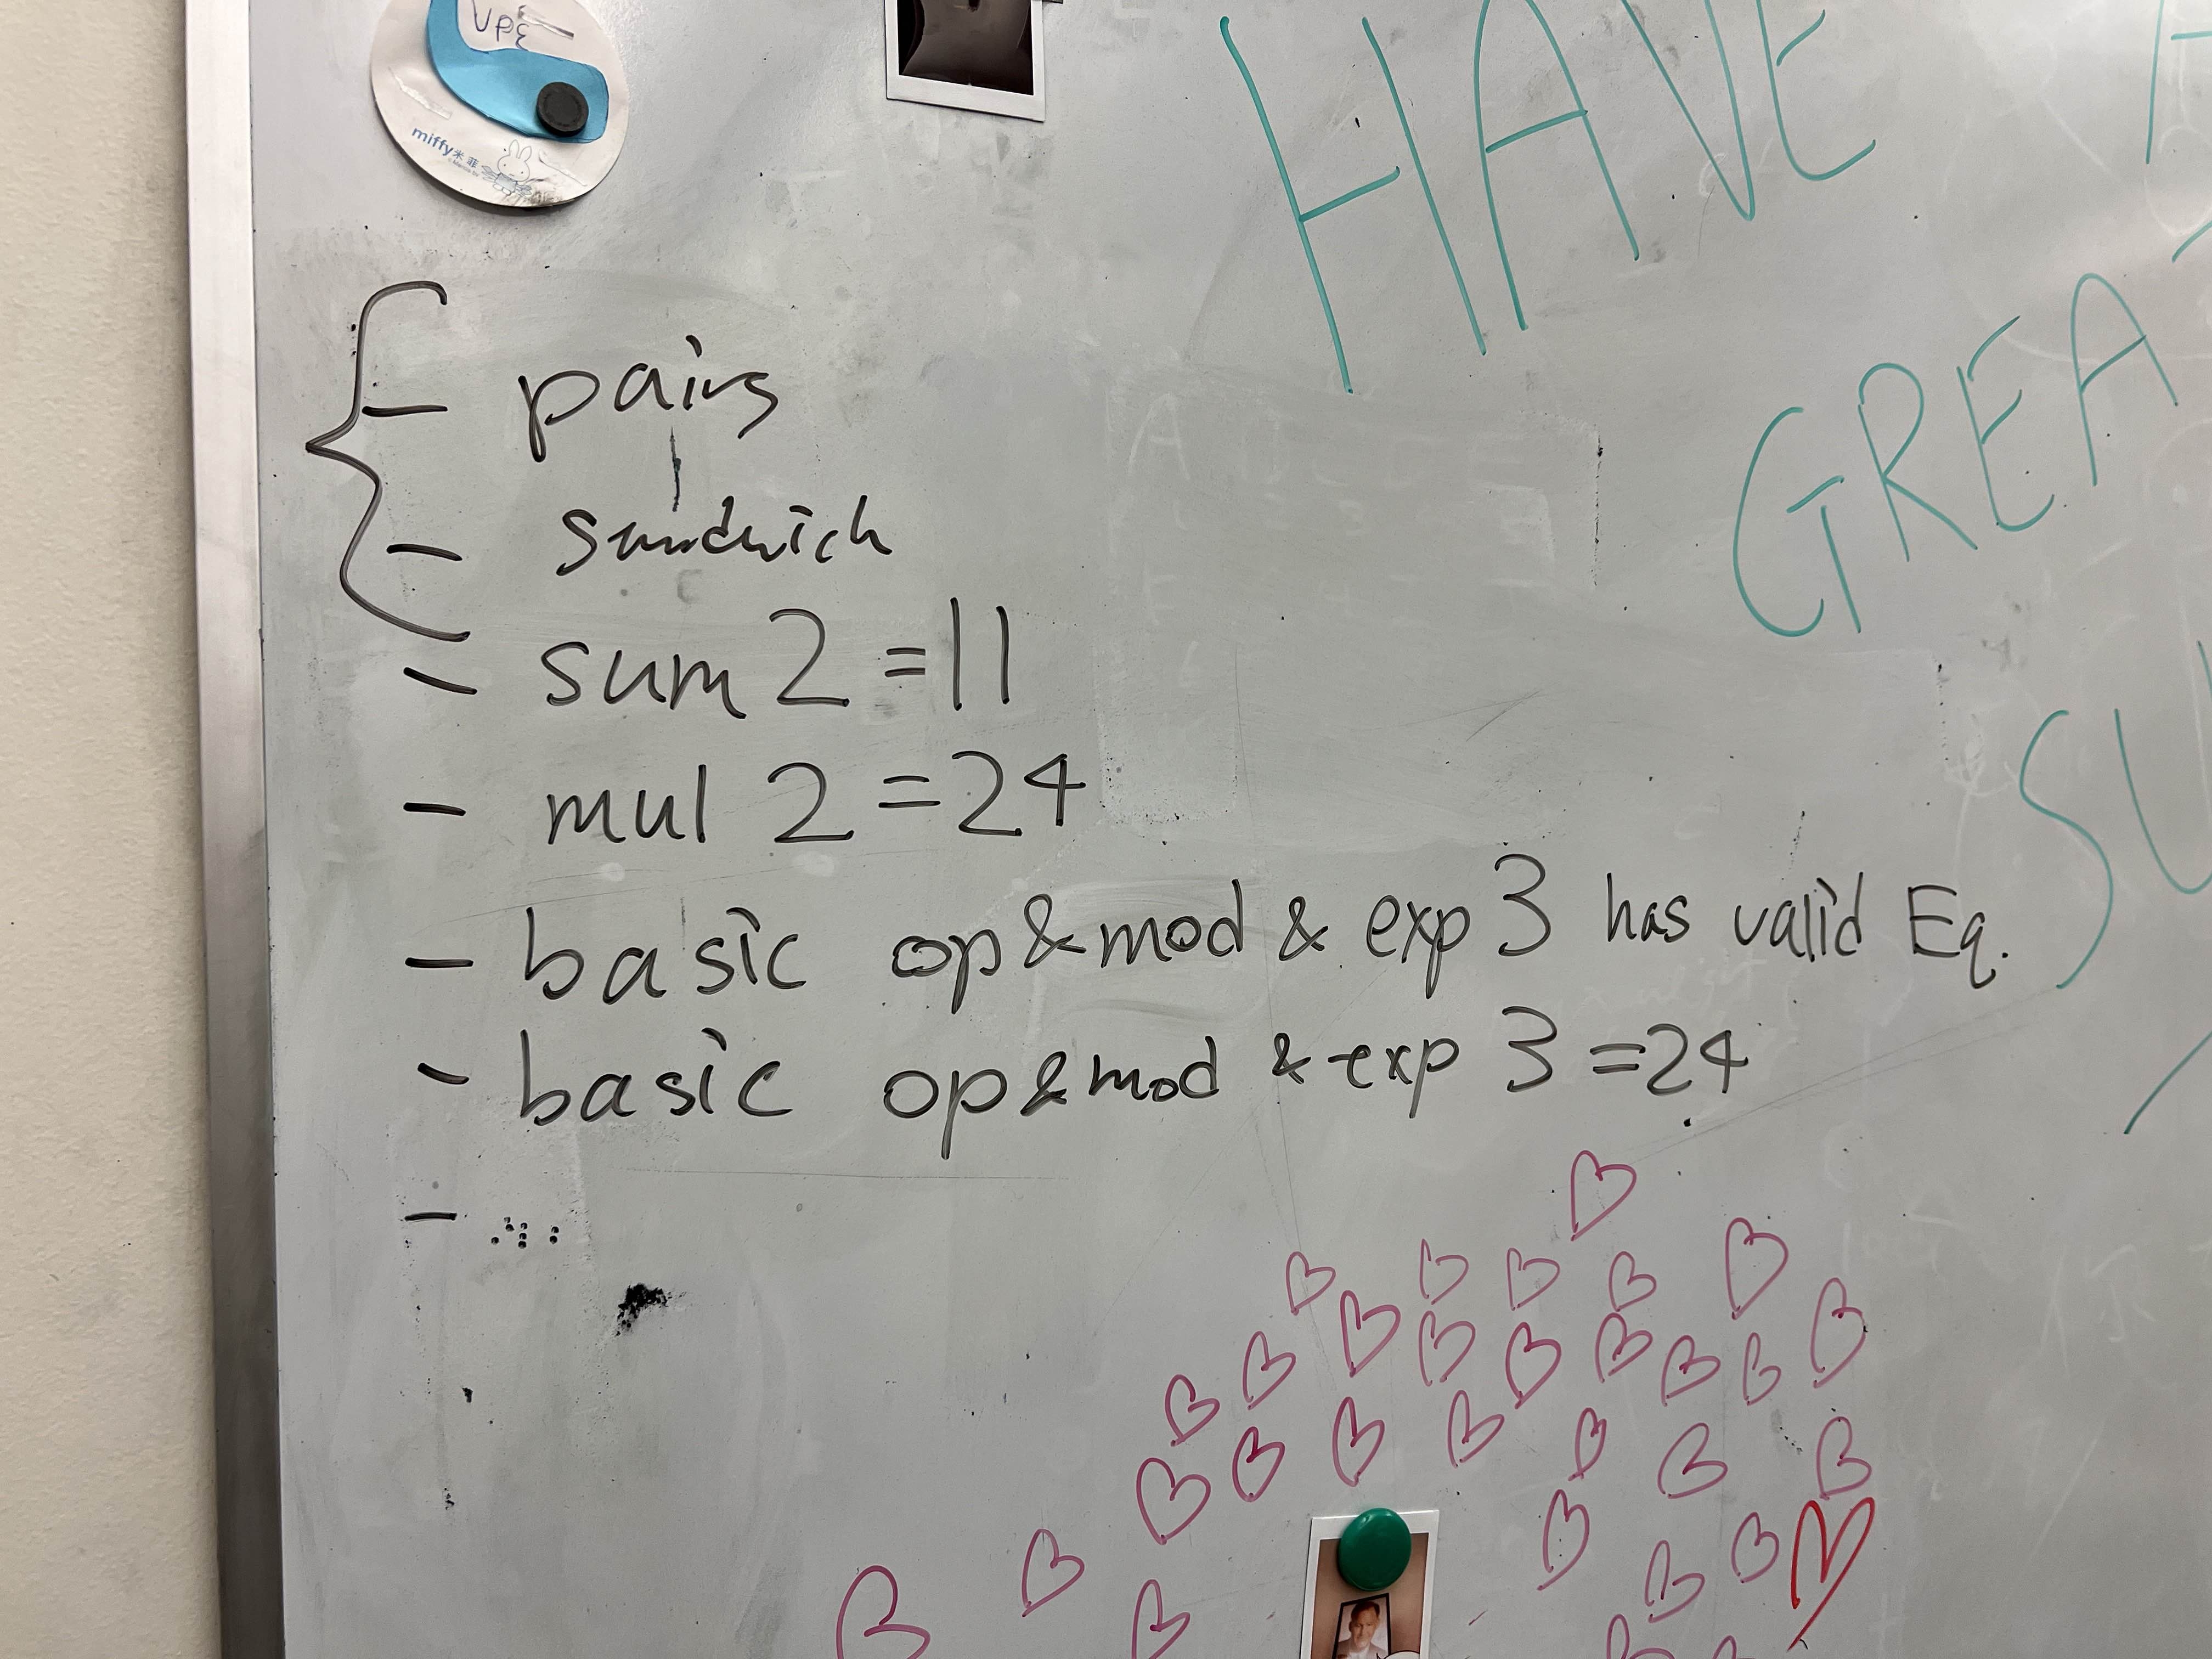 miffy米菲
HAVE
GREA
SU
- pairs
- sandwich
- sum 2 = 11
- mul 2 = 24
- basic op & mod & exp 3 has valid Eq.
- basic op & mod & exp 3 = 24
-